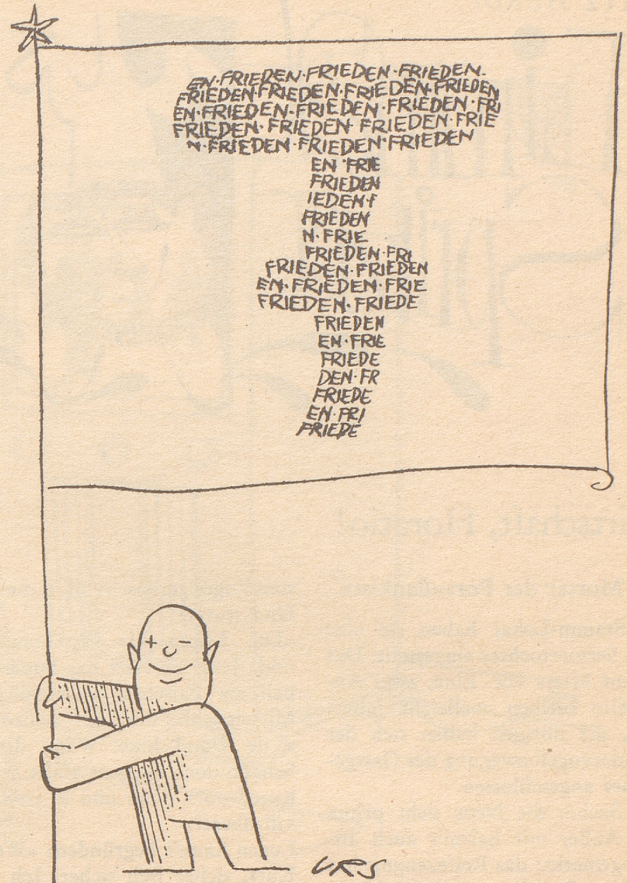 EN·FRIEDEN·FRIEDEN·FRIEDEN·
FRIEDEN·FRIEDEN·FRIEDEN·FRIEDEN
EN·FRIEDEN·FRIEDEN·FRIEDEN·FRI
FRIEDEN·FRIEDEN·FRIEDEN·FRIE
N·FRIEDEN·FRIEDEN·FRIEDEN
EN·FRIE
FRIEDEN
IEDEN·F
FRIEDEN
N·FRIE
FRIEDEN·FRI
FRIEDEN·FRIEDEN
EN·FRIEDEN·FRIE
FRIEDEN·FRIEDE
FRIEDEN
EN·FRIE
FRIEDE
DEN·FR
FRIEDE
EN·FRI
FRIEDE
URS